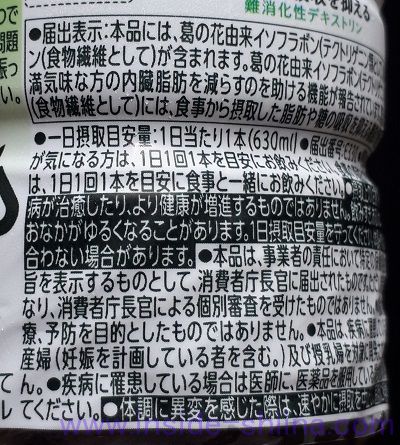 を抑える
難消化性デキストリン
●届出表示:本品には、葛の花由来イソフラボン(テクトリゲニン
(食物繊維として)が含まれます。葛の花由来イソフラボン(テクトリ
満気味な方の内臓脂肪を減らすのを助ける機能が報告されてい
(食物繊維として)には、食事から摂取した脂肪や糖の吸収を
●一日摂取目安量:1日当たり1本(630ml) ●届出番号
が気になる方は、1日1回1本を目安にお飲みください。
は、1日1回1本を目安に食事と一緒にお飲みください。
病が治癒したり、より健康が増進するものではありません。
おなかがゆるくなることがあります。1日摂取目安量を守ってください。
合わない場合があります。●本品は、事業者の責任において特定の
旨を表示するものとして、消費者庁長官に届出されたものです。
なり、消費者庁長官による個別審査を受けたものではありません。
療、予防を目的としたものではありません。●本品は、疾病に罹患
産婦(妊娠を計画している者を含む。)及び授乳婦を対象に
ん。●疾病に罹患している場合は医師に、医薬品を服用している
てください。●体調に異変を感じた際は、速やかに摂取を中
ので
問題
張っ
い
てん
レ
www.inside-shiina.com